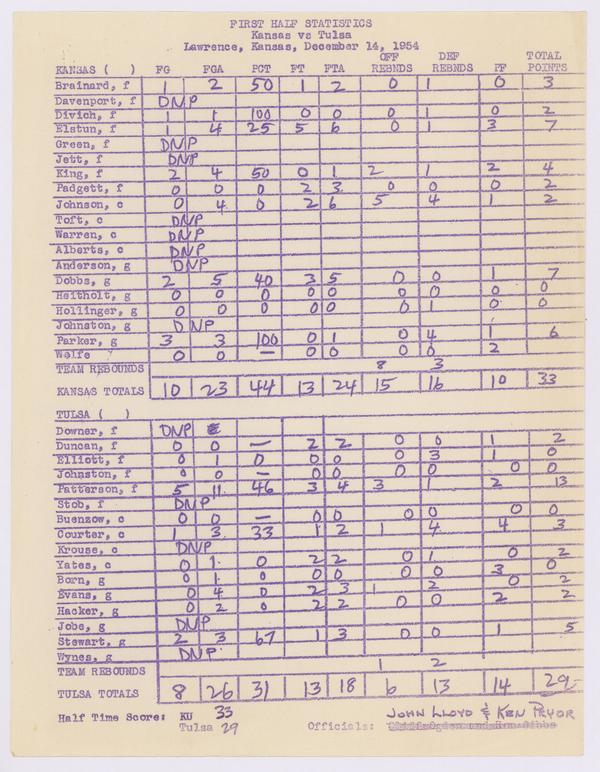 FIRST HALF STATISTICS
Kansas vs Tulsa
Lawrence, Kansas, December 14, 1954
OFF DEF TOTAL
KANSAS ( ) FG FGA PCT FT FTA REBNDS REBNDS PF POINTS
Brainard, f 1 2 50 1 2 0 1 0 3
Davenport, f DNP
Divich, f 1 1 100 0 0 0 1 0 2
Elstun, f 1 4 25 5 6 0 1 3 7
Green, f DNP
Jett, f DNP
King, f 2 4 50 0 1 2 1 2 4
Padgett, f 0 0 0 2 3 0 0 0 2
Johnson, c 0 4 0 2 6 5 4 1 2
Toft, c DNP
Warren, c DNP
Alberts, c DNP
Anderson, g DNP
Dobbs, g 2 5 40 3 5 0 0 1 7
Heitholt, g 0 0 0 0 0 0 0 0 0
Hollinger, g 0 0 0 0 0 0 1 0 0
Johnston, g DNP
Parker, g 3 3 100 0 1 0 4 1 6
Wolfe 0 0 — 0 0 0 0 2
TEAM REBOUNDS 8 3
KANSAS TOTALS 10 23 44 13 24 15 16 10 33
TULSA ( )
Downer, f DNP
Duncan, f 0 0 — 2 2 0 0 1 2
Elliott, f 0 1 0 0 0 0 3 1 0
Johnston, f 0 0 — 0 0 0 0 0 0
Patterson, f 5 11 46 3 4 3 1 2 13
Stob, f DNP
Buenzow, c 0 0 — 0 0 0 0 0 0
Courter, c 1 3 33 1 2 1 4 4 3
Krouse, c DNP
Yates, c 0 1 0 2 2 0 1 0 2
Born, g 0 1 0 0 0 0 0 3 0
Evans, g 0 4 0 2 3 1 2 0 2
Hacker, g 0 2 0 2 2 0 0 2 2
Jobe, g DNP
Stewart, g 2 3 67 1 3 0 0 1 5
Wynes, g DNP
TEAM REBOUNDS 1 2
TULSA TOTALS 8 26 31 13 18 6 13 14 29
Half Time Score: KU 33 JOHN LLOYD & KEN PRYOR
Tulsa 29 Officials: